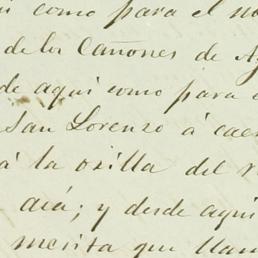 como para el
de los Cañones de
de aqui como para
San Lorenzo á caer
á la orilla del
y desde aqui
merita que llam